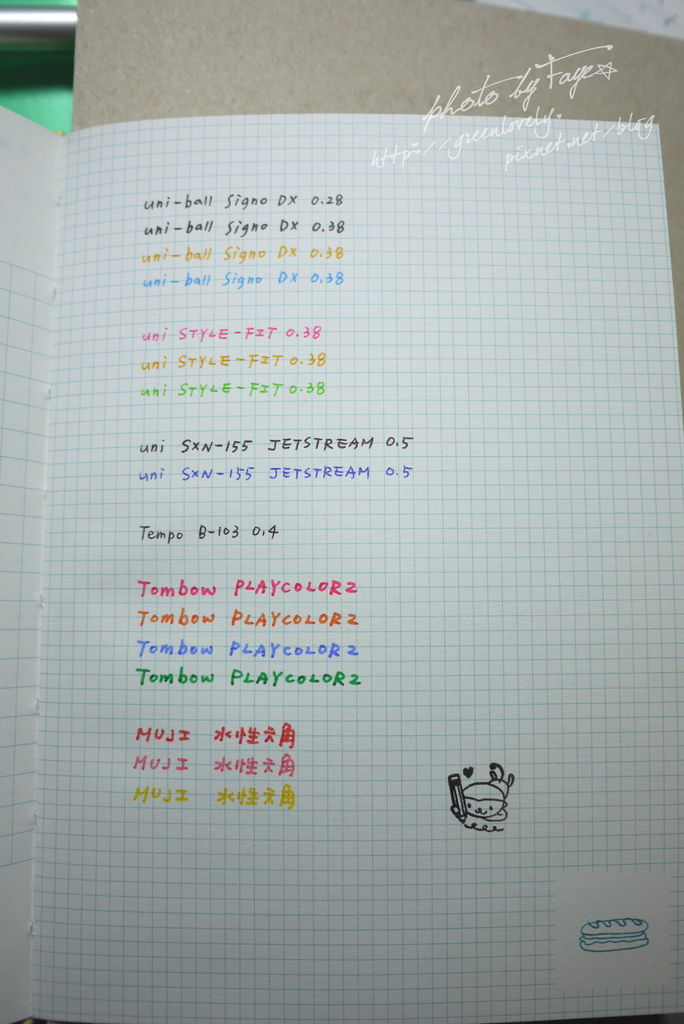 photo by Faye
http://greenlovely.
pixnet.net/blog
uni-ball Signo DX 0.28
uni-ball Signo DX 0.38
uni-ball Signo DX 0.38
uni-ball Signo DX 0.38
uni STYLE-FIT 0.38
uni STYLE-FIT 0.38
uni STYLE-FIT 0.38
uni SXN-155 JETSTREAM 0.5
uni SXN-155 JETSTREAM 0.5
Tempo B-103 0.4
Tombow PLAYCOLOR2
Tombow PLAYCOLOR2
Tombow PLAYCOLOR2
Tombow PLAYCOLOR2
MUJI 水性六角
MUJI 水性六角
MUJI 水性六角